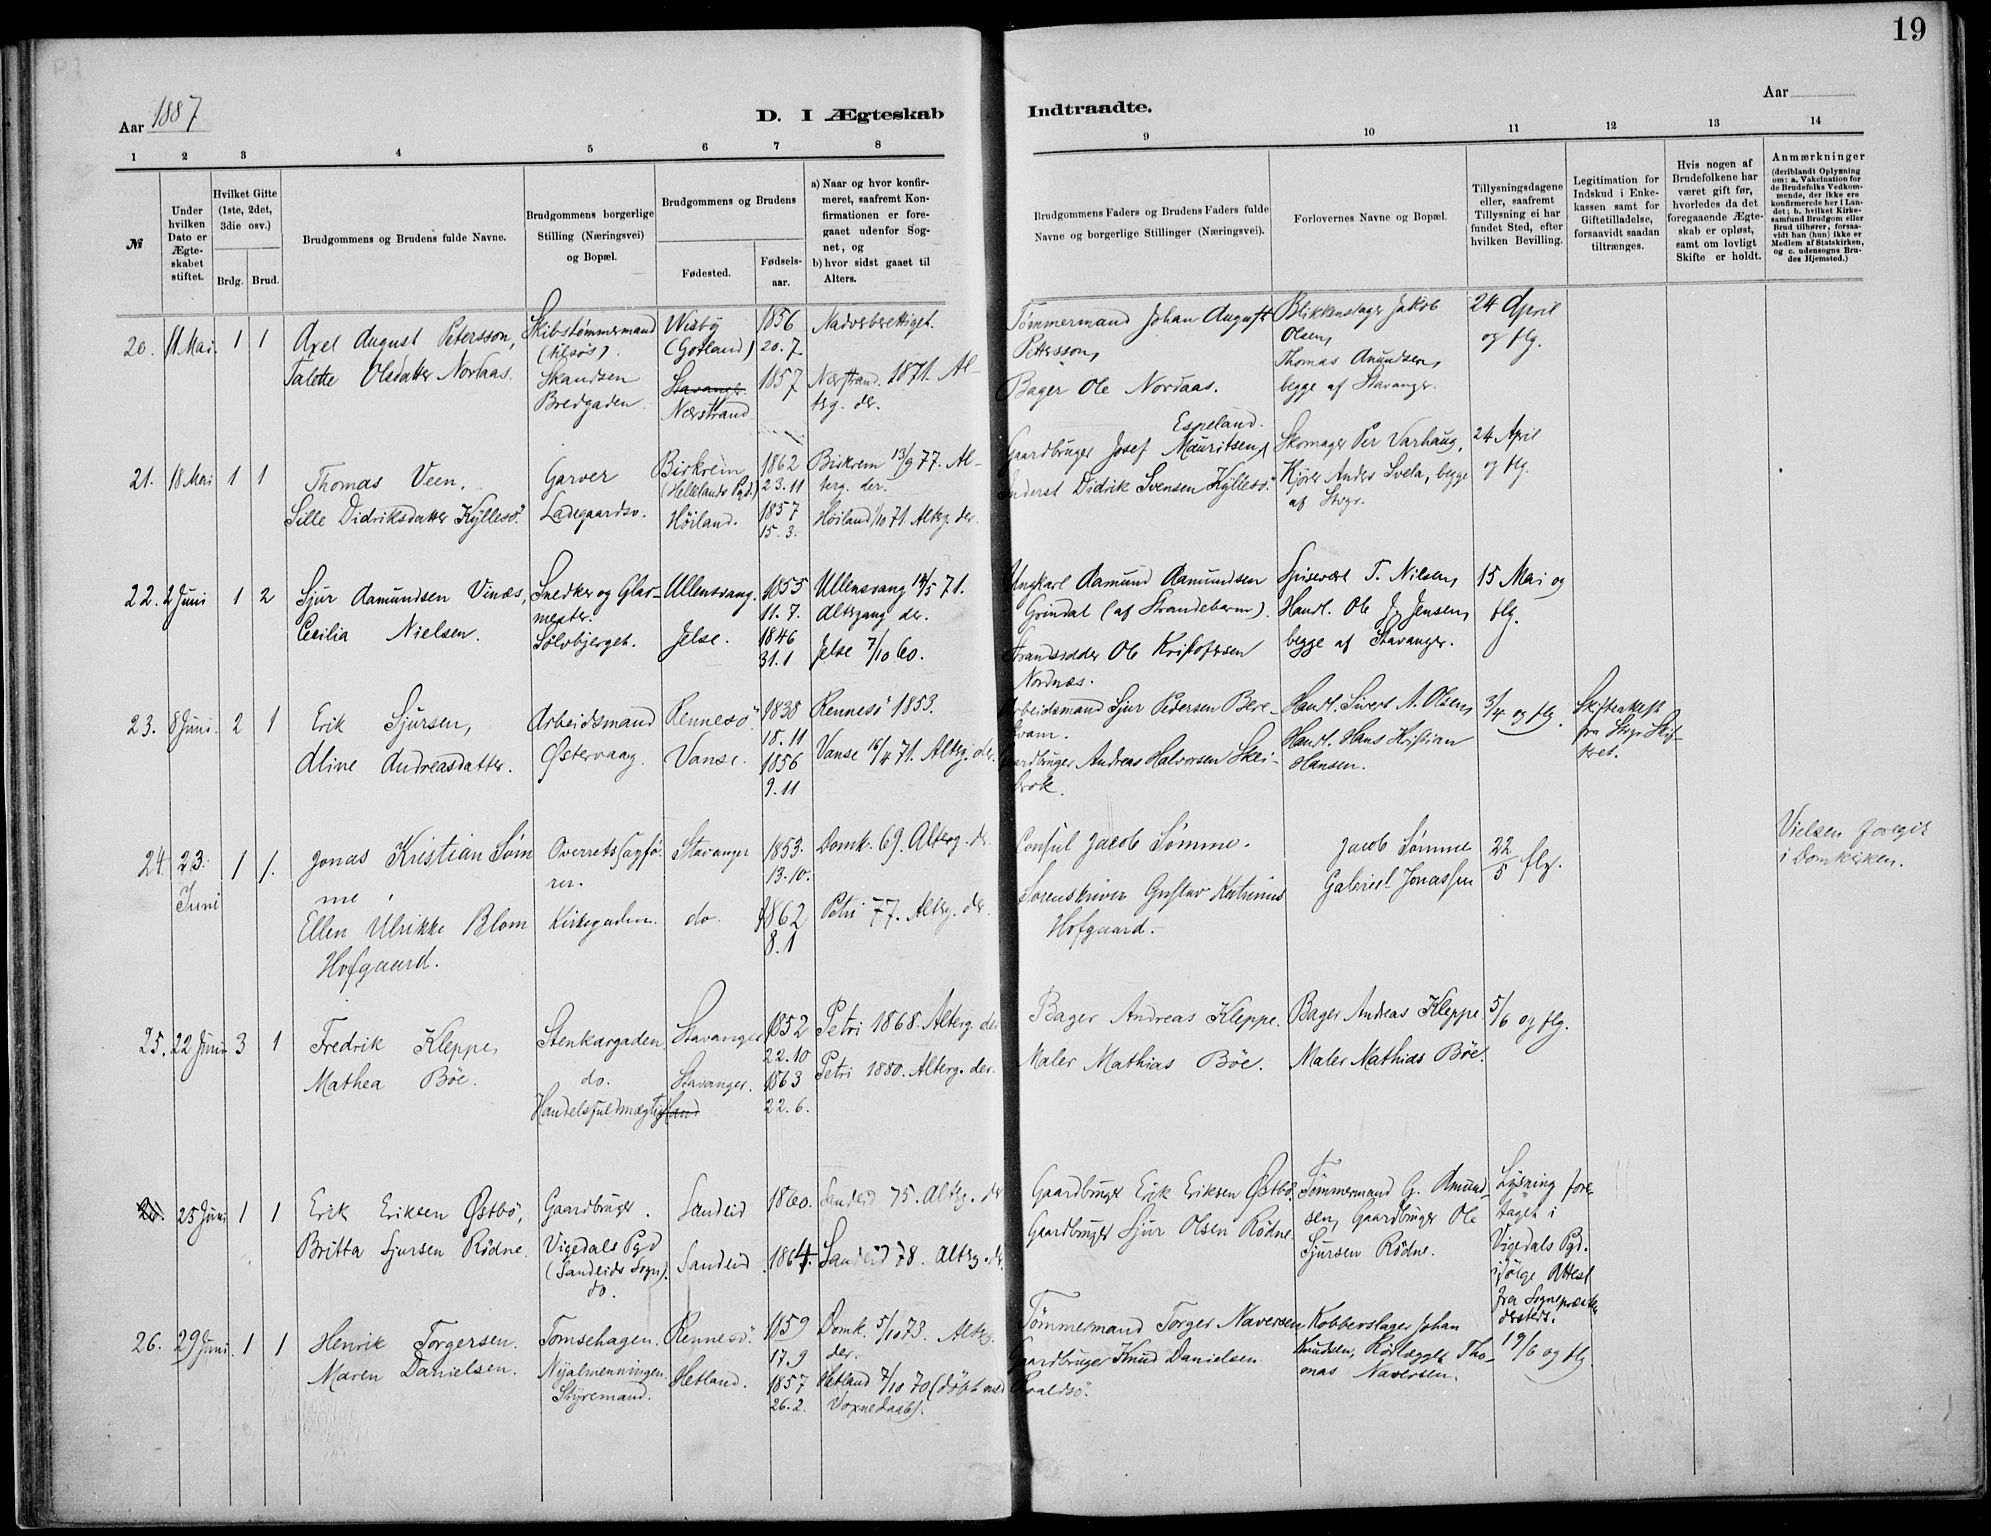 19
Aar 1887
D. I Ægteskab
Indtraadte.
Aar
1 2 3 4 5 6 7 8 9 10 11 12 13 14
№
Under hvilken Dato er Ægteskabet stiftet.
Hvilket Gifte (1ste, 2det, 3die osv.)
Brdg. Brud.
Brudgommens og Brudens fulde Navne.
Brudgommens borgerlige Stilling (Næringsvei) og Bopæl.
Brudgommens og Brudens
Fødested.
Fødsels-aar.
a) Naar og hvor konfirmeret, saafremt Konfirmationen er foregaaet udenfor Sognet, og
b) hvor sidst gaaet til Alters.
Brudgommens Faders og Brudens Faders fulde Navne og borgerlige Stillinger (Næringsvei).
Forlovernes Navne og Bopæl.
Tillysningsdagene eller, saafremt Tillysning ei har fundet Sted, efter hvilken Bevilling.
Legitimation for Indskud i Enkekassen samt for Giftetilladelse, forsaavidt saadan tiltrænges.
Hvis nogen af Brudefolkene har været gift før, hvorledes da det foregaaende Ægteskab er opløst, samt om lovligt Skifte er holdt.
Anmærkninger
(deriblandt Oplysning om: a. Vakcination for de Brudefolks Vedkommende, der ikke ere konfirmerede her i Landet; b. hvilket Kirkesamfund Brudgom eller Brud tilhører, forsaavidt han (hun) ikke er Medlem af Statskirken, og c. udensogns Brudes Hjemsted.)
20. 11 Mai. 1 1
Axel August Petersson,
Talette Olsdatter Nordaas.
Skibstømmermand
(tilsøs).
Skandsen
Bredgaden.
Wisby
(Gotland)
Stavanger
Nerstrand
1856
20.7
1857
Nadverberettiget.
Nerstrand. 1871. Al-
terg. der.
Tømmermand Johan August
Pettersson,
Bager Ole Nordaas.
Blikkenslager Jakob
Olsen,
Thomas Anundsen,
begge af Stavanger.
24 April
og flg.
21. 18 Mai 1 1
Thomas Veen,
Sille Didriksdatter Kyllesö.
Garver
Ladegaardsv.
Birkreim
(Hellelands Pgd.)
Höiland.
1862
23.11
1857
15.3.
Birkrem 13/9 77. Al-
terg. der.
Höiland 1/10 71. Alterg. der.
Espeland.
Gaardbruger Josef Mauritsen,
Inderst Didrik Svensen Kyllesö.
Skomager Per Varhaug,
Kjører Anders Svela, begge
af Stvgr.
24 April
og flg.
22. 2 Juni 1 2
Sjur Aamundsen Vinæs,
Cecilia Nielsen.
Snedker og Glar-
mester.
Sølvbjerget.
Ullensvang.
Jelse.
1855
11.7.
1846
31.1
Ullensvang 14/5 71.
Altergang der.
Jelse 7/10 60.
Ungkarl Aamund Aamundsen
Grindal (af Strandebarm).
Strandsidder Ole Kristofersen
Nordnæs.
Spisevært T. Nilsen,
Handl. Ole Jg Jensen,
begge af Stavanger.
15 Mai og
flg.
23. 8 Juni. 2 1
Erik Sjursen,
Aline Andreasdatter.
Arbeidsmand
Østervaag.
Rennesö.
Vanse.
1838
18.11
1856
9.11
Rennesö 1853.
Vanse 16/4 71. Alterg. der.
Arbeidsmand Sjur Pedersen Bere-
kvam.
Gaardbruger Andreas Halvorsen Skei-
brok.
Handl. Sivert A. Olsen,
Handl. Hans Kristian
Hansen.
3/4 og flg.
Skifteattest
fra Stvgr Skif-
teret.
24 23. Juni 1 1.
Jonas Kristian Søm
me,
Ellen Ulrikke Blom
Hofgaard.
Overretssagfø-
rer.
Kirkegaden.
Stavanger
do.
1853.
13.10.
1862
8.1
Domk. 69. Alterg. der
Petri 77. Alterg. der.
Consul Jacob Sømme.
Sorenskriver Gustav Katrinus
Hofgaard.
Jacob Sømme
Gabriel Jonassen
22/5 flg.
Vielsen foregik
i Domkirken.
25. 22 Juni 3 1
Fredrik Kleppe,
Mathea Böe.
Stenkargaden.
do.
Handelsfuldmægtig
Stavanger
Stavanger.
1852
22.10
1863
22.6.
Petri 1868. Alterg. der
Petri 1880. Alterg. der.
Bager Andreas Kleppe.
Maler Mathias Böe.
Bager Andreas Kleppe
Maler Mathias Böe.
5/6 og flg.
25 Juni 1 1
Erik Eriksen Østbö,
Britta Sjursen Rödne.
Gaardbruger.
Vigedals Pgd
(Sandeids Sogn).
do.
Sandeid
Sandeid
1860.
1864.
Sandeid 75. Alterg. der
Sandeid 78. Alterg. der.
Gaardbruger Erik Eriksen Østbö.
Gaardbruger Sjur Olsen Rödne.
Tømmermand G. Amund-
sen, Gaardbruger Ole
Sjursen Rödne.
Lysning fore-
taget i
Vigedals Pgd.
ifölge Attest
fra Sognepræsten
dersteds.
26. 29 Juni. 1 1
Henrik Torgersen.
Maren Danielsen.
Tomsehagen.
Nyalmenningen.
Styremand.
Rennesö.
Hetland.
1859
17.9
1857
26.2.
Domk. 5/10 73. Alterg.
der.
Hetland 7/10 70 (döbt med
Voxnedaab).
Tømmermand Torger Naversen
Gaardbruger Knud Danielsen
Roaldsö.
Kobberslager Johan
Knudsen, Rørlægger Tho-
mas Naversen.
19/6 og flg.